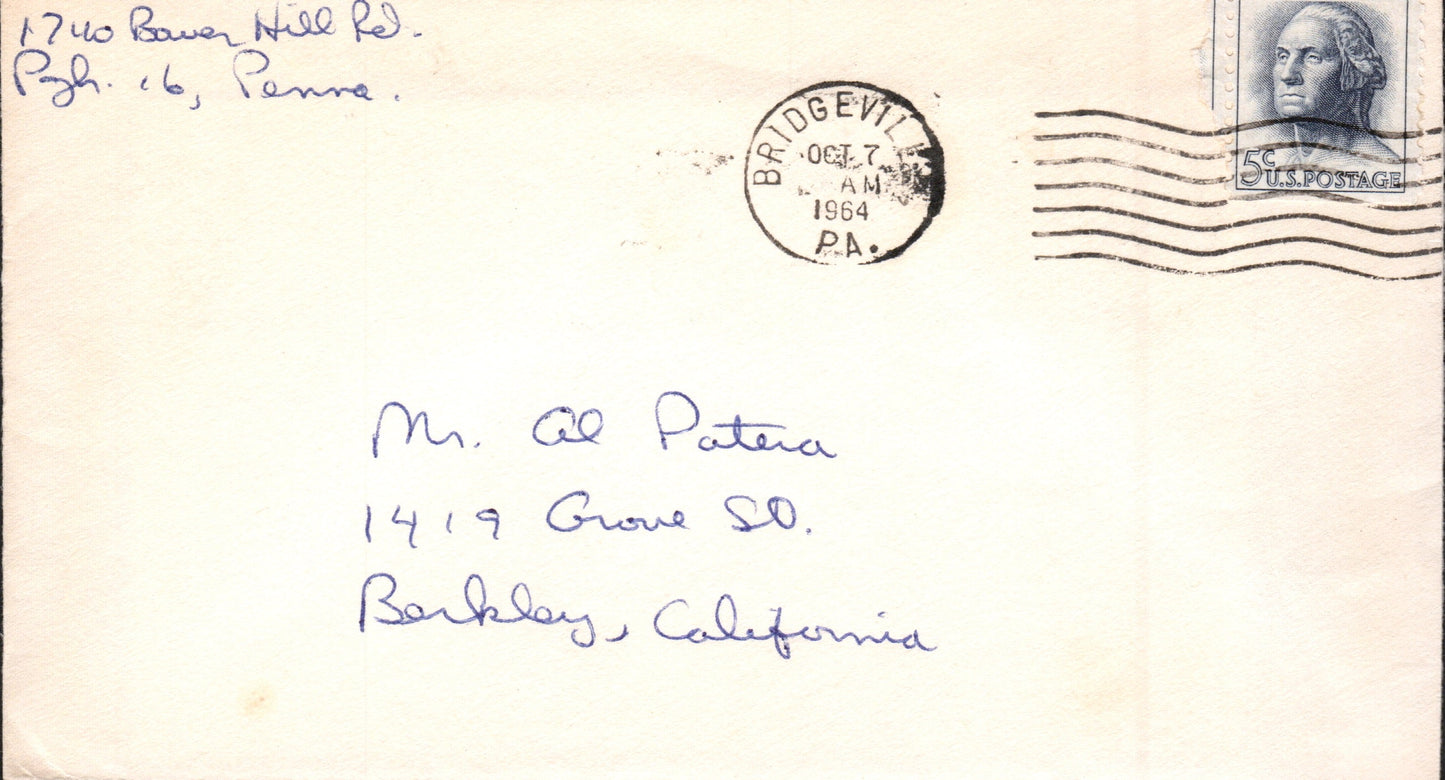 1740 Bower Hill Rd.
Pgh. 16, Penna.
BRIDGEVILLE
OCT 7
AM
1964
PA.
5c
U.S. POSTAGE
Mr. Al Patera
1419 Grove St.
Berkley, California